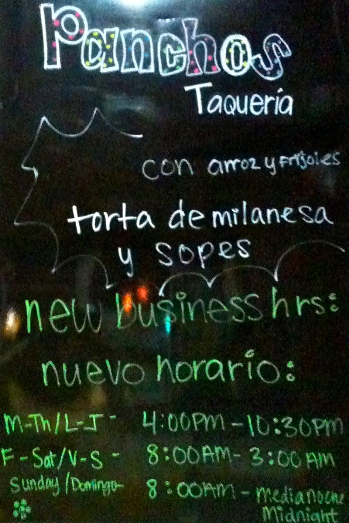 Panchos
Taquería
con arroz y frijoles
torta de milanesa
y sopes
new business hrs:
nuevo horario:
M-Th/L-J - 4:00PM-10:30PM
F-Sat/V-S - 8:00AM-3:00AM
Sunday/Domingo- 8:00AM-medianoche
Midnight